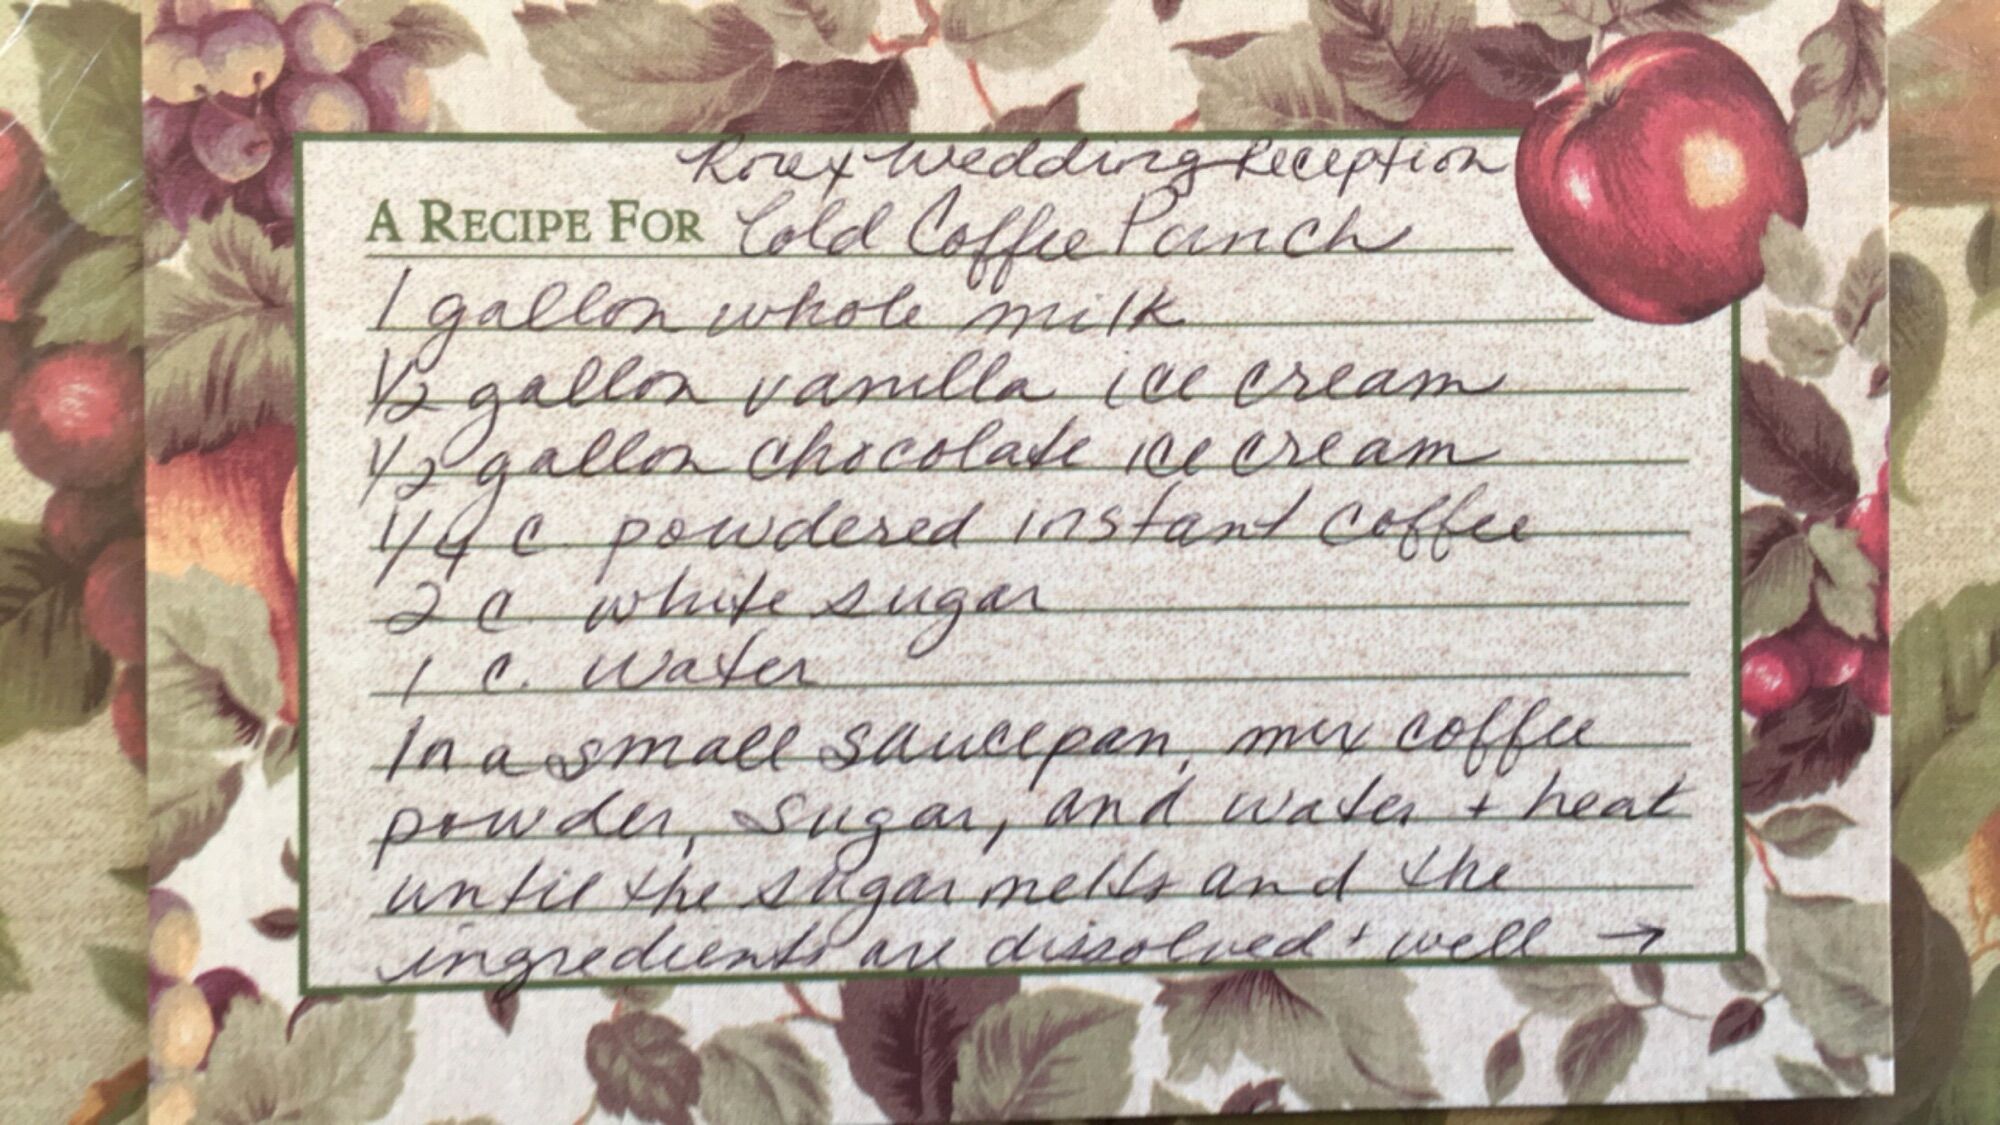 Wedding Reception
A RECIPE FOR Cold Coffee Punch
1 gallon whole milk
1/2 gallon vanilla ice cream
1/2 gallon chocolate ice cream
1/4 c. powdered instant coffee
2 c. white sugar
1 c. water
In a small saucepan, mix coffee
powder, sugar, and water + heat
until the sugar melts and the
ingredients are dissolved + well →